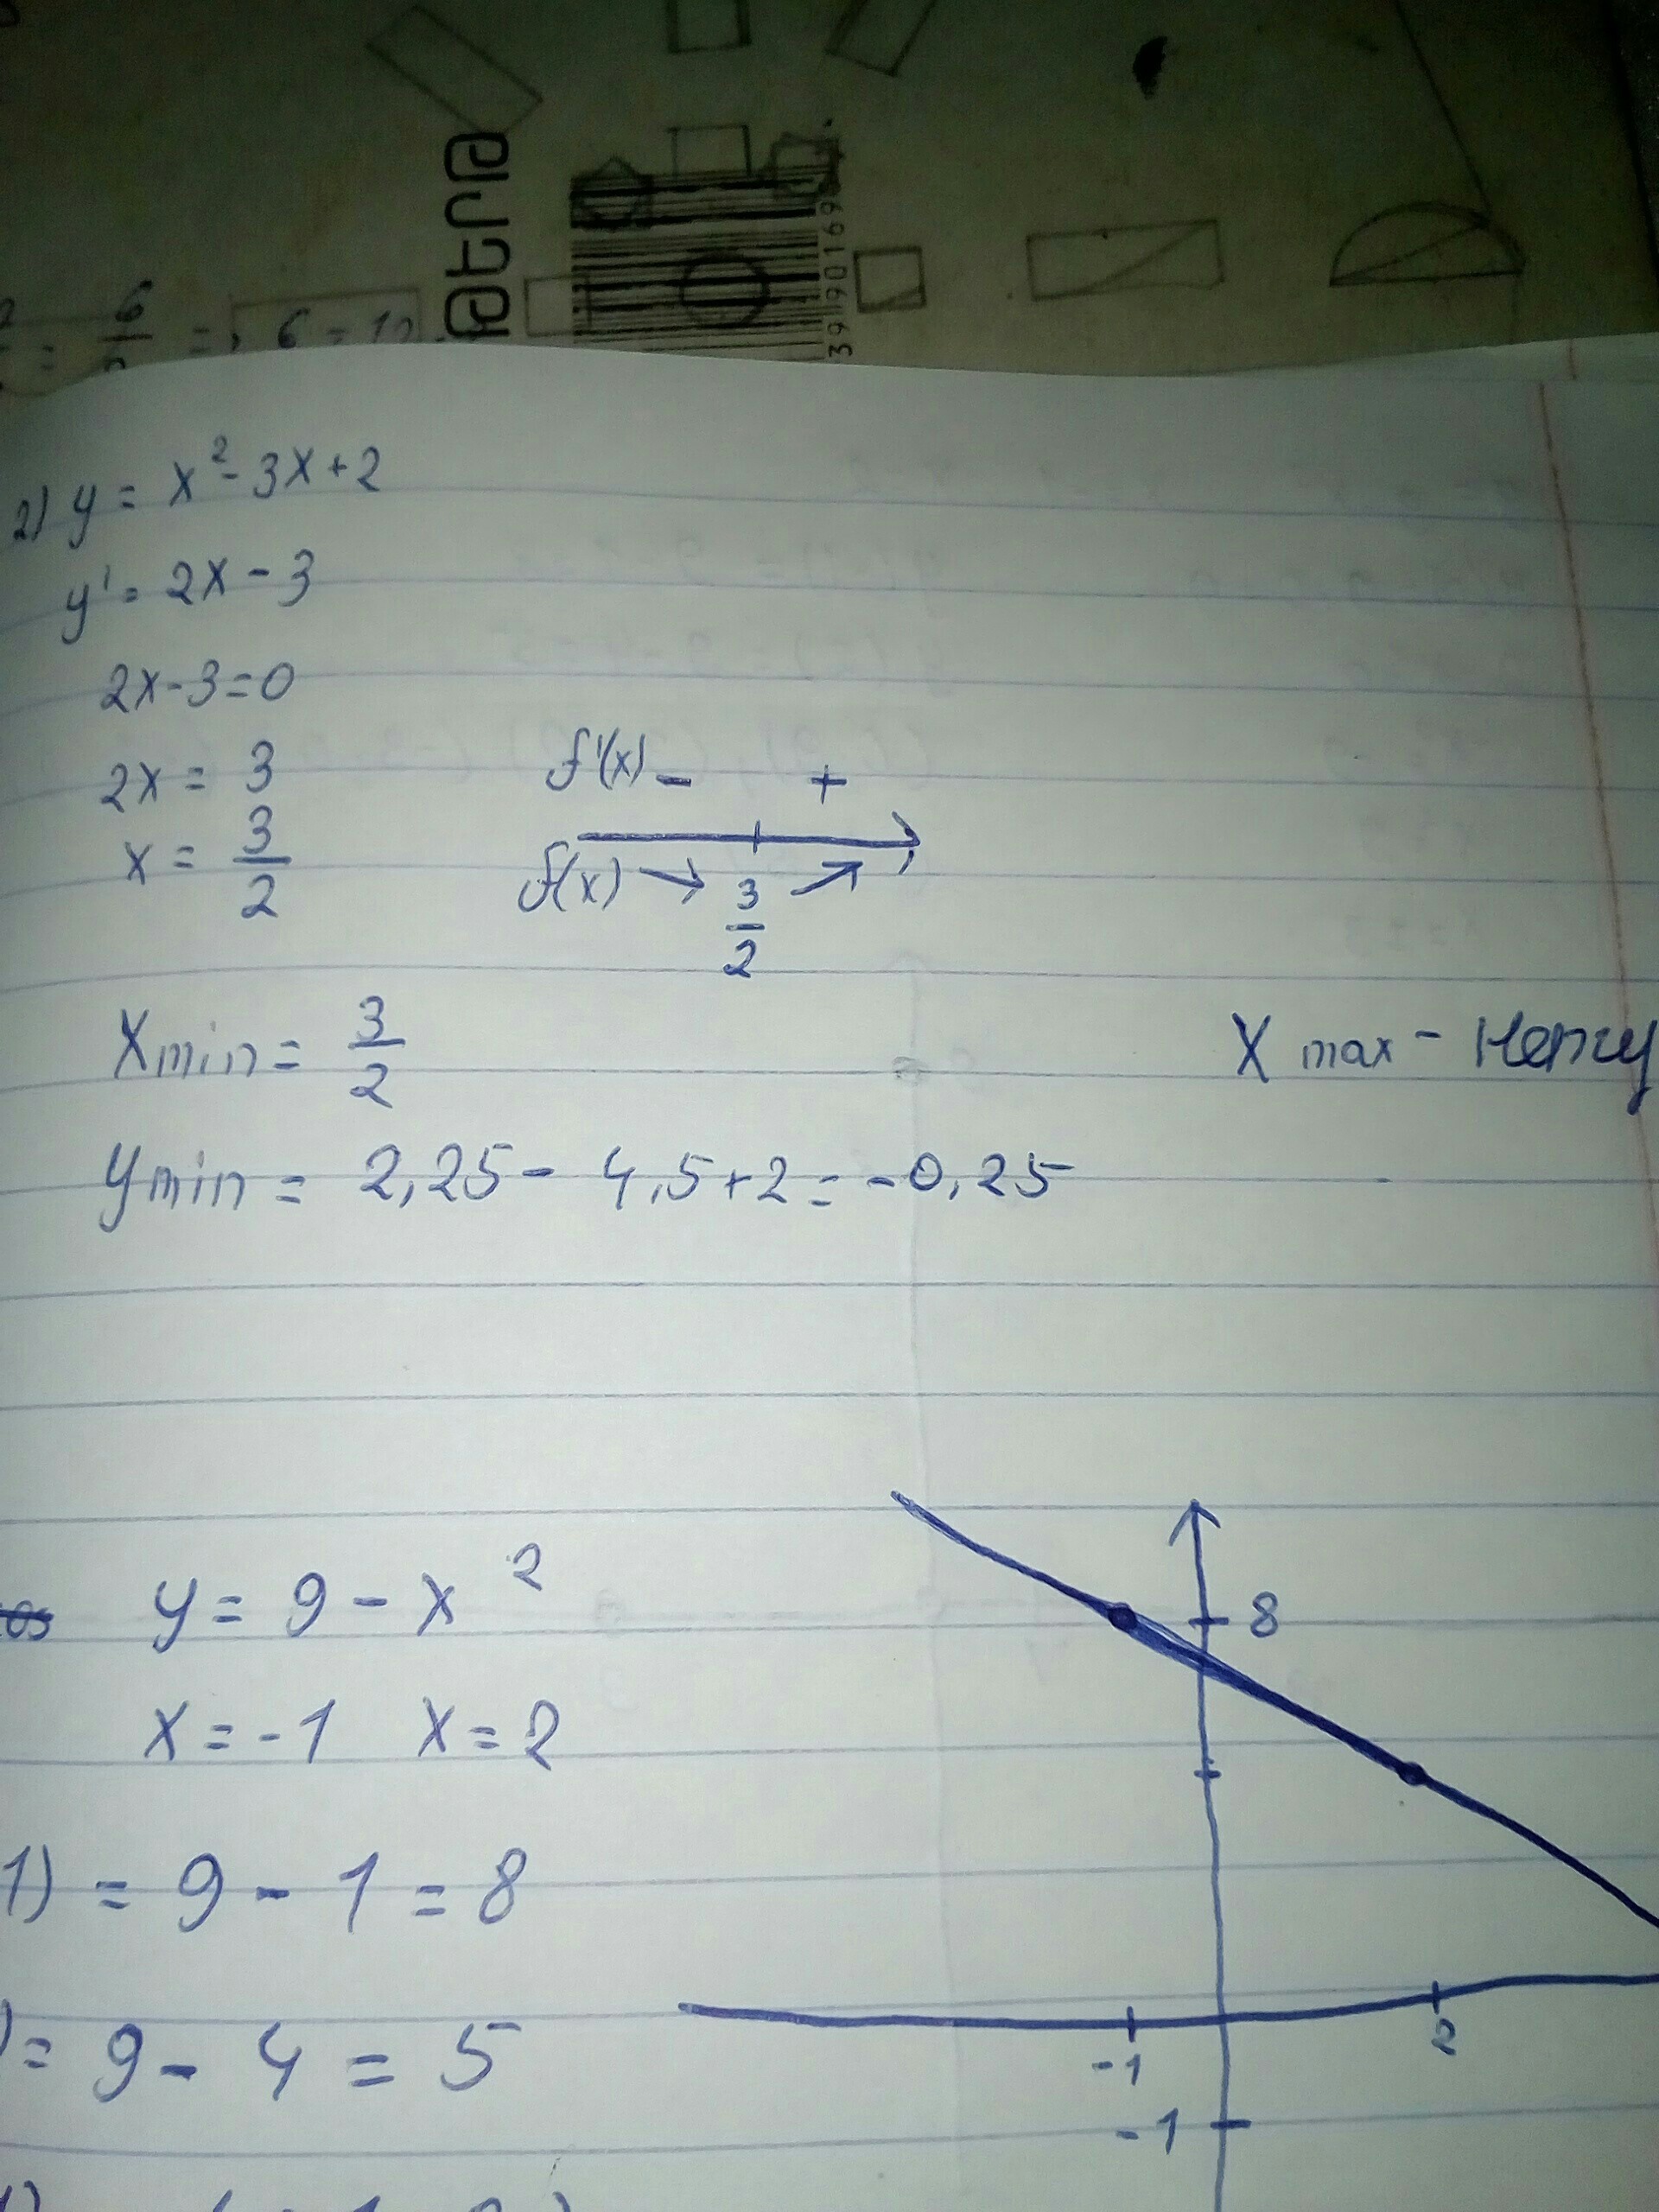 atra
3990169
6 = 12
2) y = x² - 3x + 2
y' = 2x - 3
2x - 3 = 0
2x = 3
x = 3/2
f'(x) - +
f(x) 3/2
Xmin = 3/2
X max -
ymin = 2,25 - 4,5 + 2 = -0,25
y = 9 - x²
8
x = -1 x = 2
1) = 9 - 1 = 8
) = 9 - 4 = 5
-1 2
-1